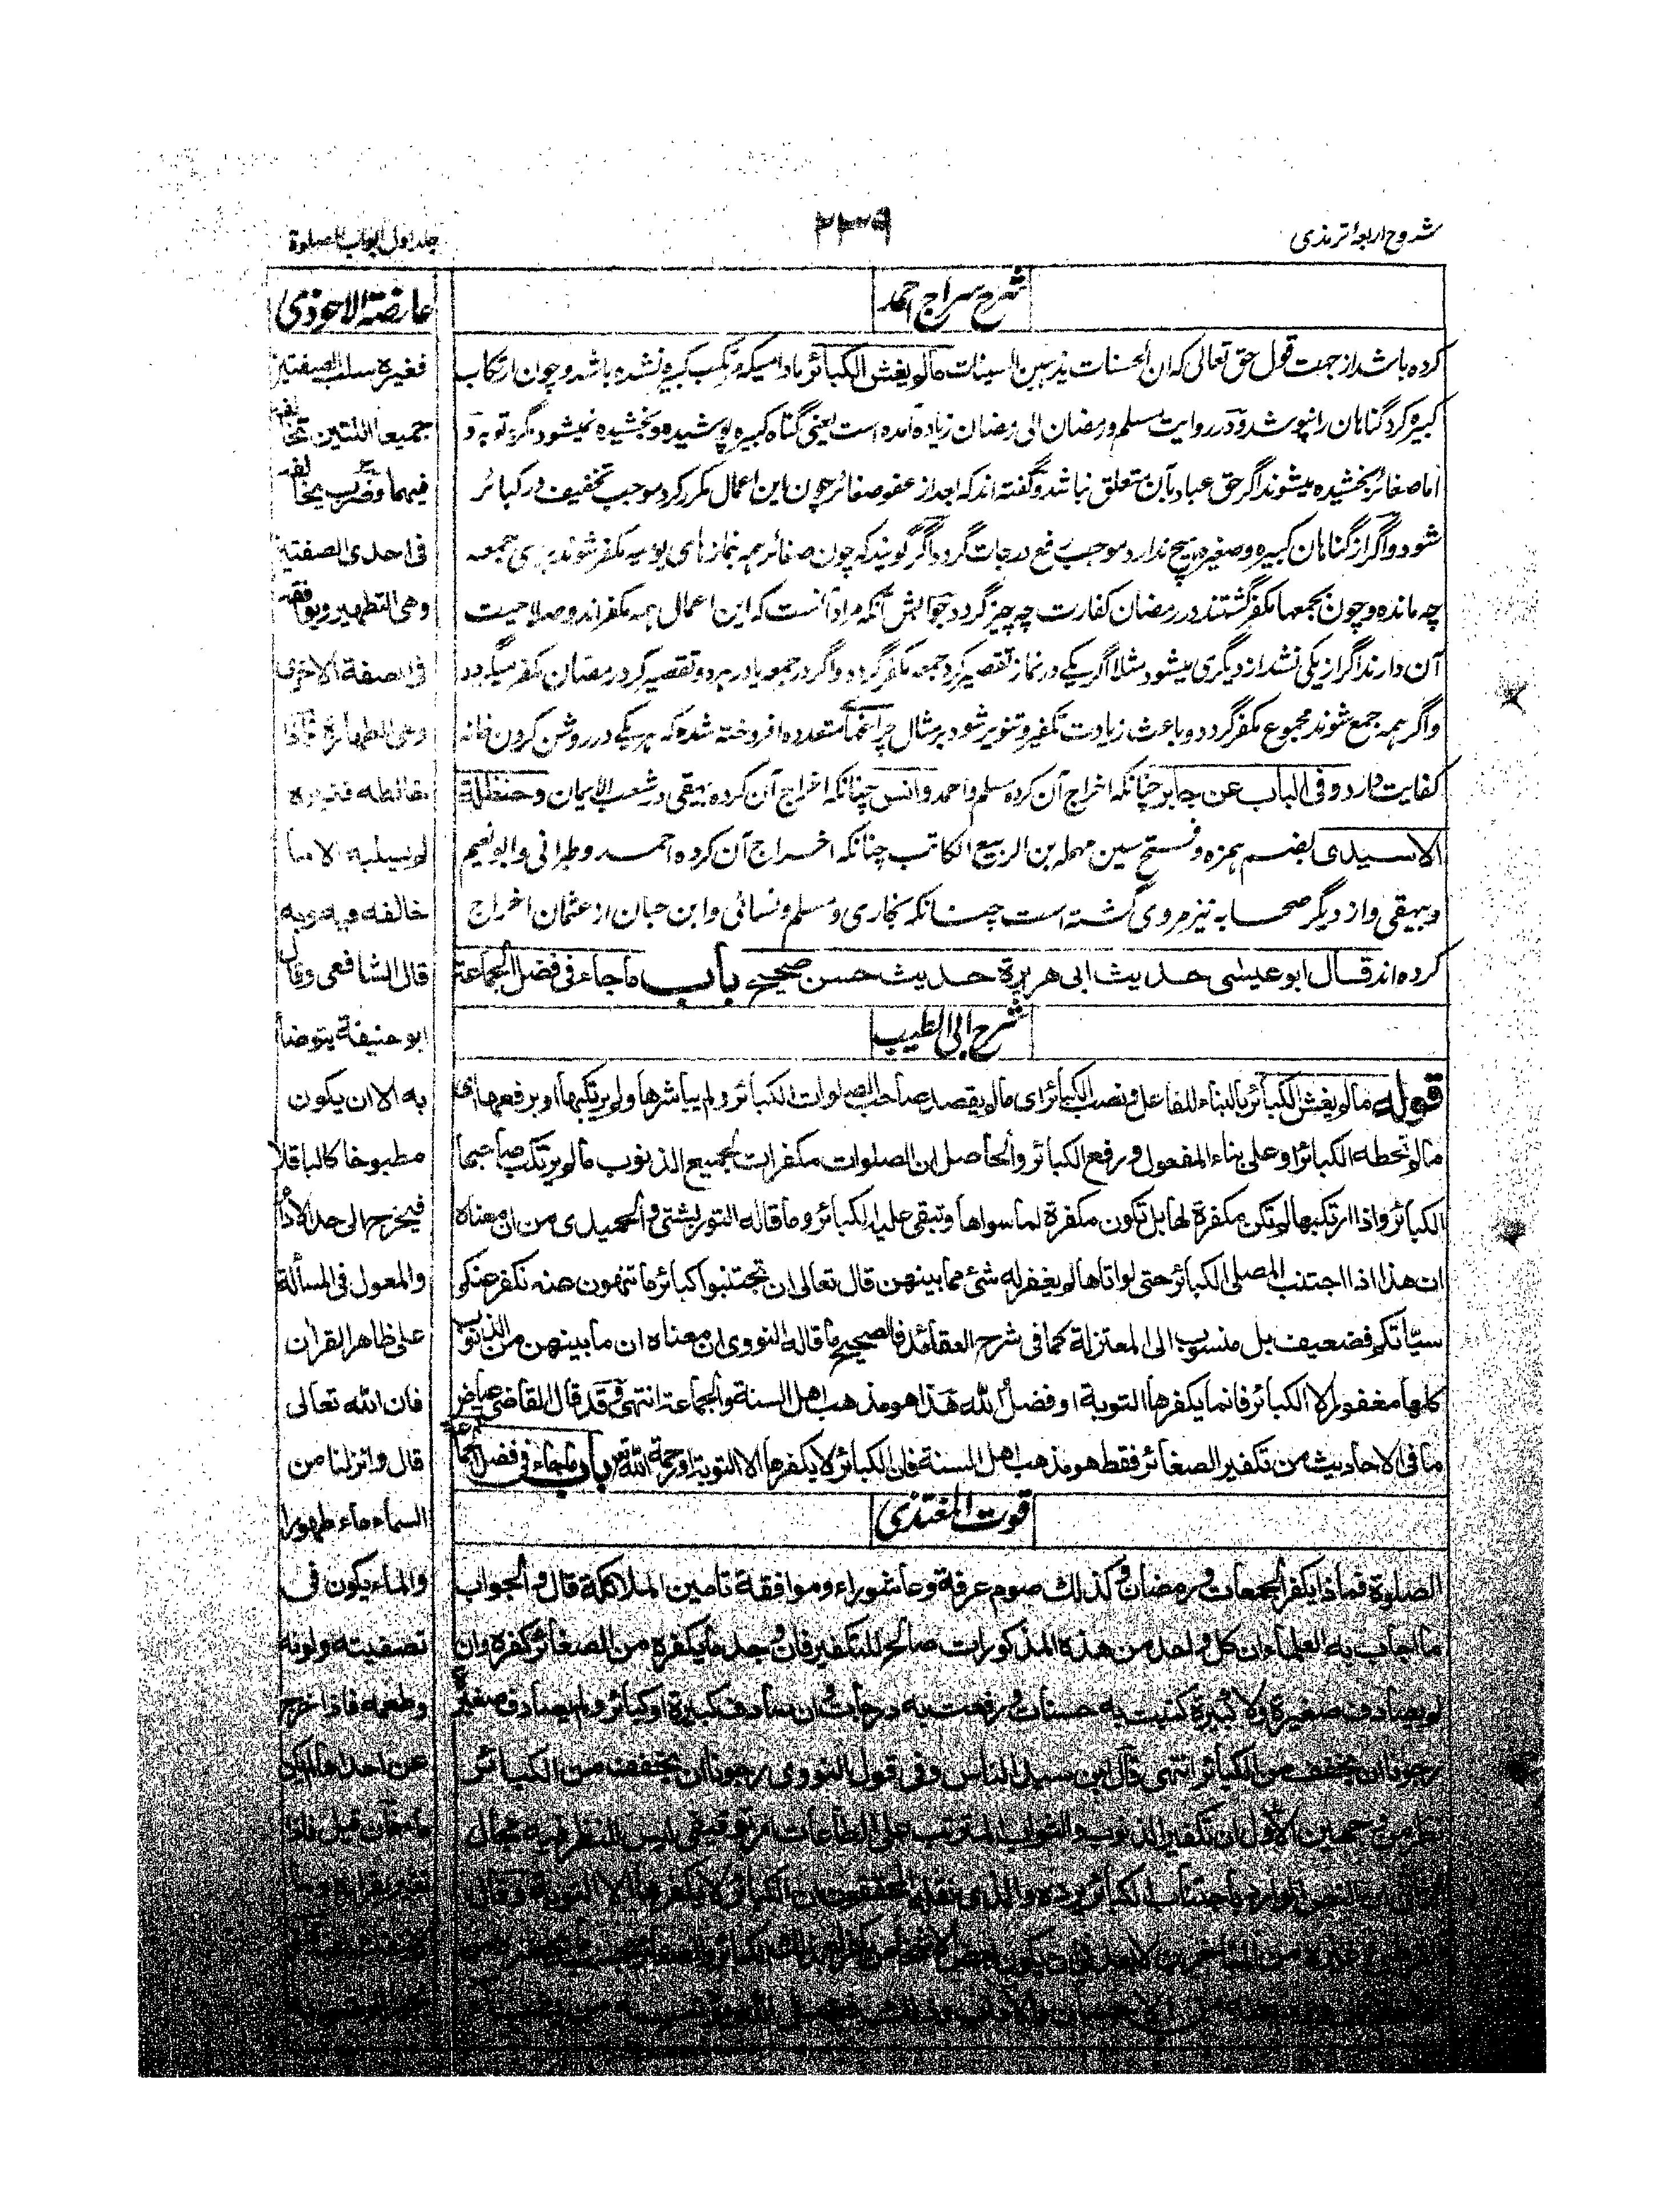 شروح اربعۂ ترمذی
۲۳۹
جلد اول ابواب الصلوة
شرح سراج احمد
کرده باشد از جهت قول حق تعالی که ان الحسنات یذهبن السیئات مالم یغش الکبائر مادامیکه مرتکب کبیره نشده باشد و چون ارتکاب
کبیره کرد گناهان را نپوشد و در روایت مسلم و رمضان الی رمضان زیاده آمده است یعنی گناه کبیره پوشیده و بخشیده نمیشود مگر بتوبه و
اما صغائر بخشیده میشوند اگر حق عباد بآن متعلق نباشد و گفته اند که بعد از عفو صغائر چون این اعمال مکرر کرد موجب تخفیف در کبائر
شود و اگر از گناهان کبیره و صغیره هیچ ندارد موجب رفع درجات گردد و اگر گویند که چون صغائر همه بنمازهای یومیه مکفر شوند برای جمعه
چه مانده و چون بجمعها مکفر گشتند در رمضان کفارت چه چیز گردد جوابش آنکه مراد آنست که این اعمال همه مکفراند و صلاحیت
آن دارند اگر از یکی نشد از دیگری میشود مثلا اگر یکے در نماز تقصیر کرد جمعه مکفر گردد و اگر در جمعه یا در هر دو تقصیر کرد رمضان مکفر میگردد
و اگر همه جمع شوند مجموع مکفر گردد و باعث زیادت تکفیر و تنویر شود بر مثال چراغهائے متعدده افروخته شده که هر یکے در روشن کردن خانه
کفایت دارد وفی الباب عن جابر چنانکه اخراج آن کرده مسلم و احمد وانس چنانکه اخراج آن کرده بیهقی در شعب الایمان وحنظلة
الاسیدی بضم همزه و فتح سین مهمله بن الربیع الکاتب چنانکه اخراج آن کرده احمد و طبرانی و ابو نعیم
و بیهقی و از دیگر صحابه نیز مروی گشته است چنانکه بخاری و مسلم و نسائی و ابن حبان از عثمان اخراج
کرده اند قال ابو عیسی حدیث ابی هریرة حدیث حسن صحیح باب ماجاء فی فضل الجماعة
شرح ابی الطیب
قوله مالم یغش الکبائر بالبناء للفاعل و نصب الکبائر ای مالم یقصد صاحب الصلوات الکبائر ولم یباشرها ولم یرتکبها او برفعها ای
مالم تحطه الکبائر او علی بناء المفعول ورفع الکبائر والحاصل ان الصلوات مکفرات لجمیع الذنوب مالم یرتکب صاحبها
الکبائر واذا ارتکبها لم تکن مکفرة لها بل تکون مکفرة لما سواها وتبقی علیه الکبائر وما قاله التوربشتی والحمیدی من ان معناه
ان هذا اذا اجتنب المصلی الکبائر حتی لو اتاها لم یغفر له شئ مما بینهن قال تعالی ان تجتنبوا کبائر ما تنهون عنه نکفر عنکم
سیّاتکم فضعیف بل منسوب الی المعتزلة کما فی شرح العقائد فالصحیح ما قاله النووی ان معناه ان ما بینهن من الذنوب
کلها مغفور الا الکبائر فانما یکفرها التوبة او فضل الله هذا هو مذهب اهل السنة والجماعة انتهی وقد قال القاضی عیاض
ما فی الاحادیث من تکفیر الصغائر فقط هو مذهب اهل السنة فان الکبائر لا یکفرها الا التوبة او رحمة الله باب ماجاء فی فضل الجماعة
قوت المغتذی
الصلوة فماذا یکفر الجمعات و رمضان وکذلك صوم عرفة وعاشوراء وموافقة تامین الملائکة قال والجواب
ما اجاب به العلماء ان کل واحد من هذه المذکورات صالح للتکفیر فان وجد ما یکفره من الصغائر کفره وان
لم یصادف صغیرة ولا کبیرة کتبت به حسنات و رفعت به درجات وان صادف کبیرة او کبائر ولم یصادف صغیرة
رجونا ان یخفف من الکبائر انتهی قال ابن سید الناس وفی قول النووی رجونا ان یخفف من الکبائر
نظر من وجهین الاول ان تکفیر الذنوب والثواب المترتب علی الطاعات امر توقیفی لیس للنظر فیه مجال
عارضة الاحوذی
فغیره سلب الصفتین
جمیعا اللتین
فیهما وضرب یخالفه
فی احدی الصفتین
وهی التطهیر ویوافقه
فی الصفة الاخری
وهی الطهارة فاذا
خالطه فغیره
لم یسلبه الا ما
خالفه فیه وبه
قال الشافعی وقال
ابو حنیفة یتوضأ
به الا ان یکون
مطبوخا کالباقلا
فیخرج الی حد الادام
والمعول فی المسألة
علی ظاهر القرأن
فان الله تعالی
قال وانزلنا من
السماء ماء طهورا
والماء یکون فی
تصفیته ولونه
وطعمه فاذا خرج
عن احدها لم یکن
ماء فان قیل فاذا